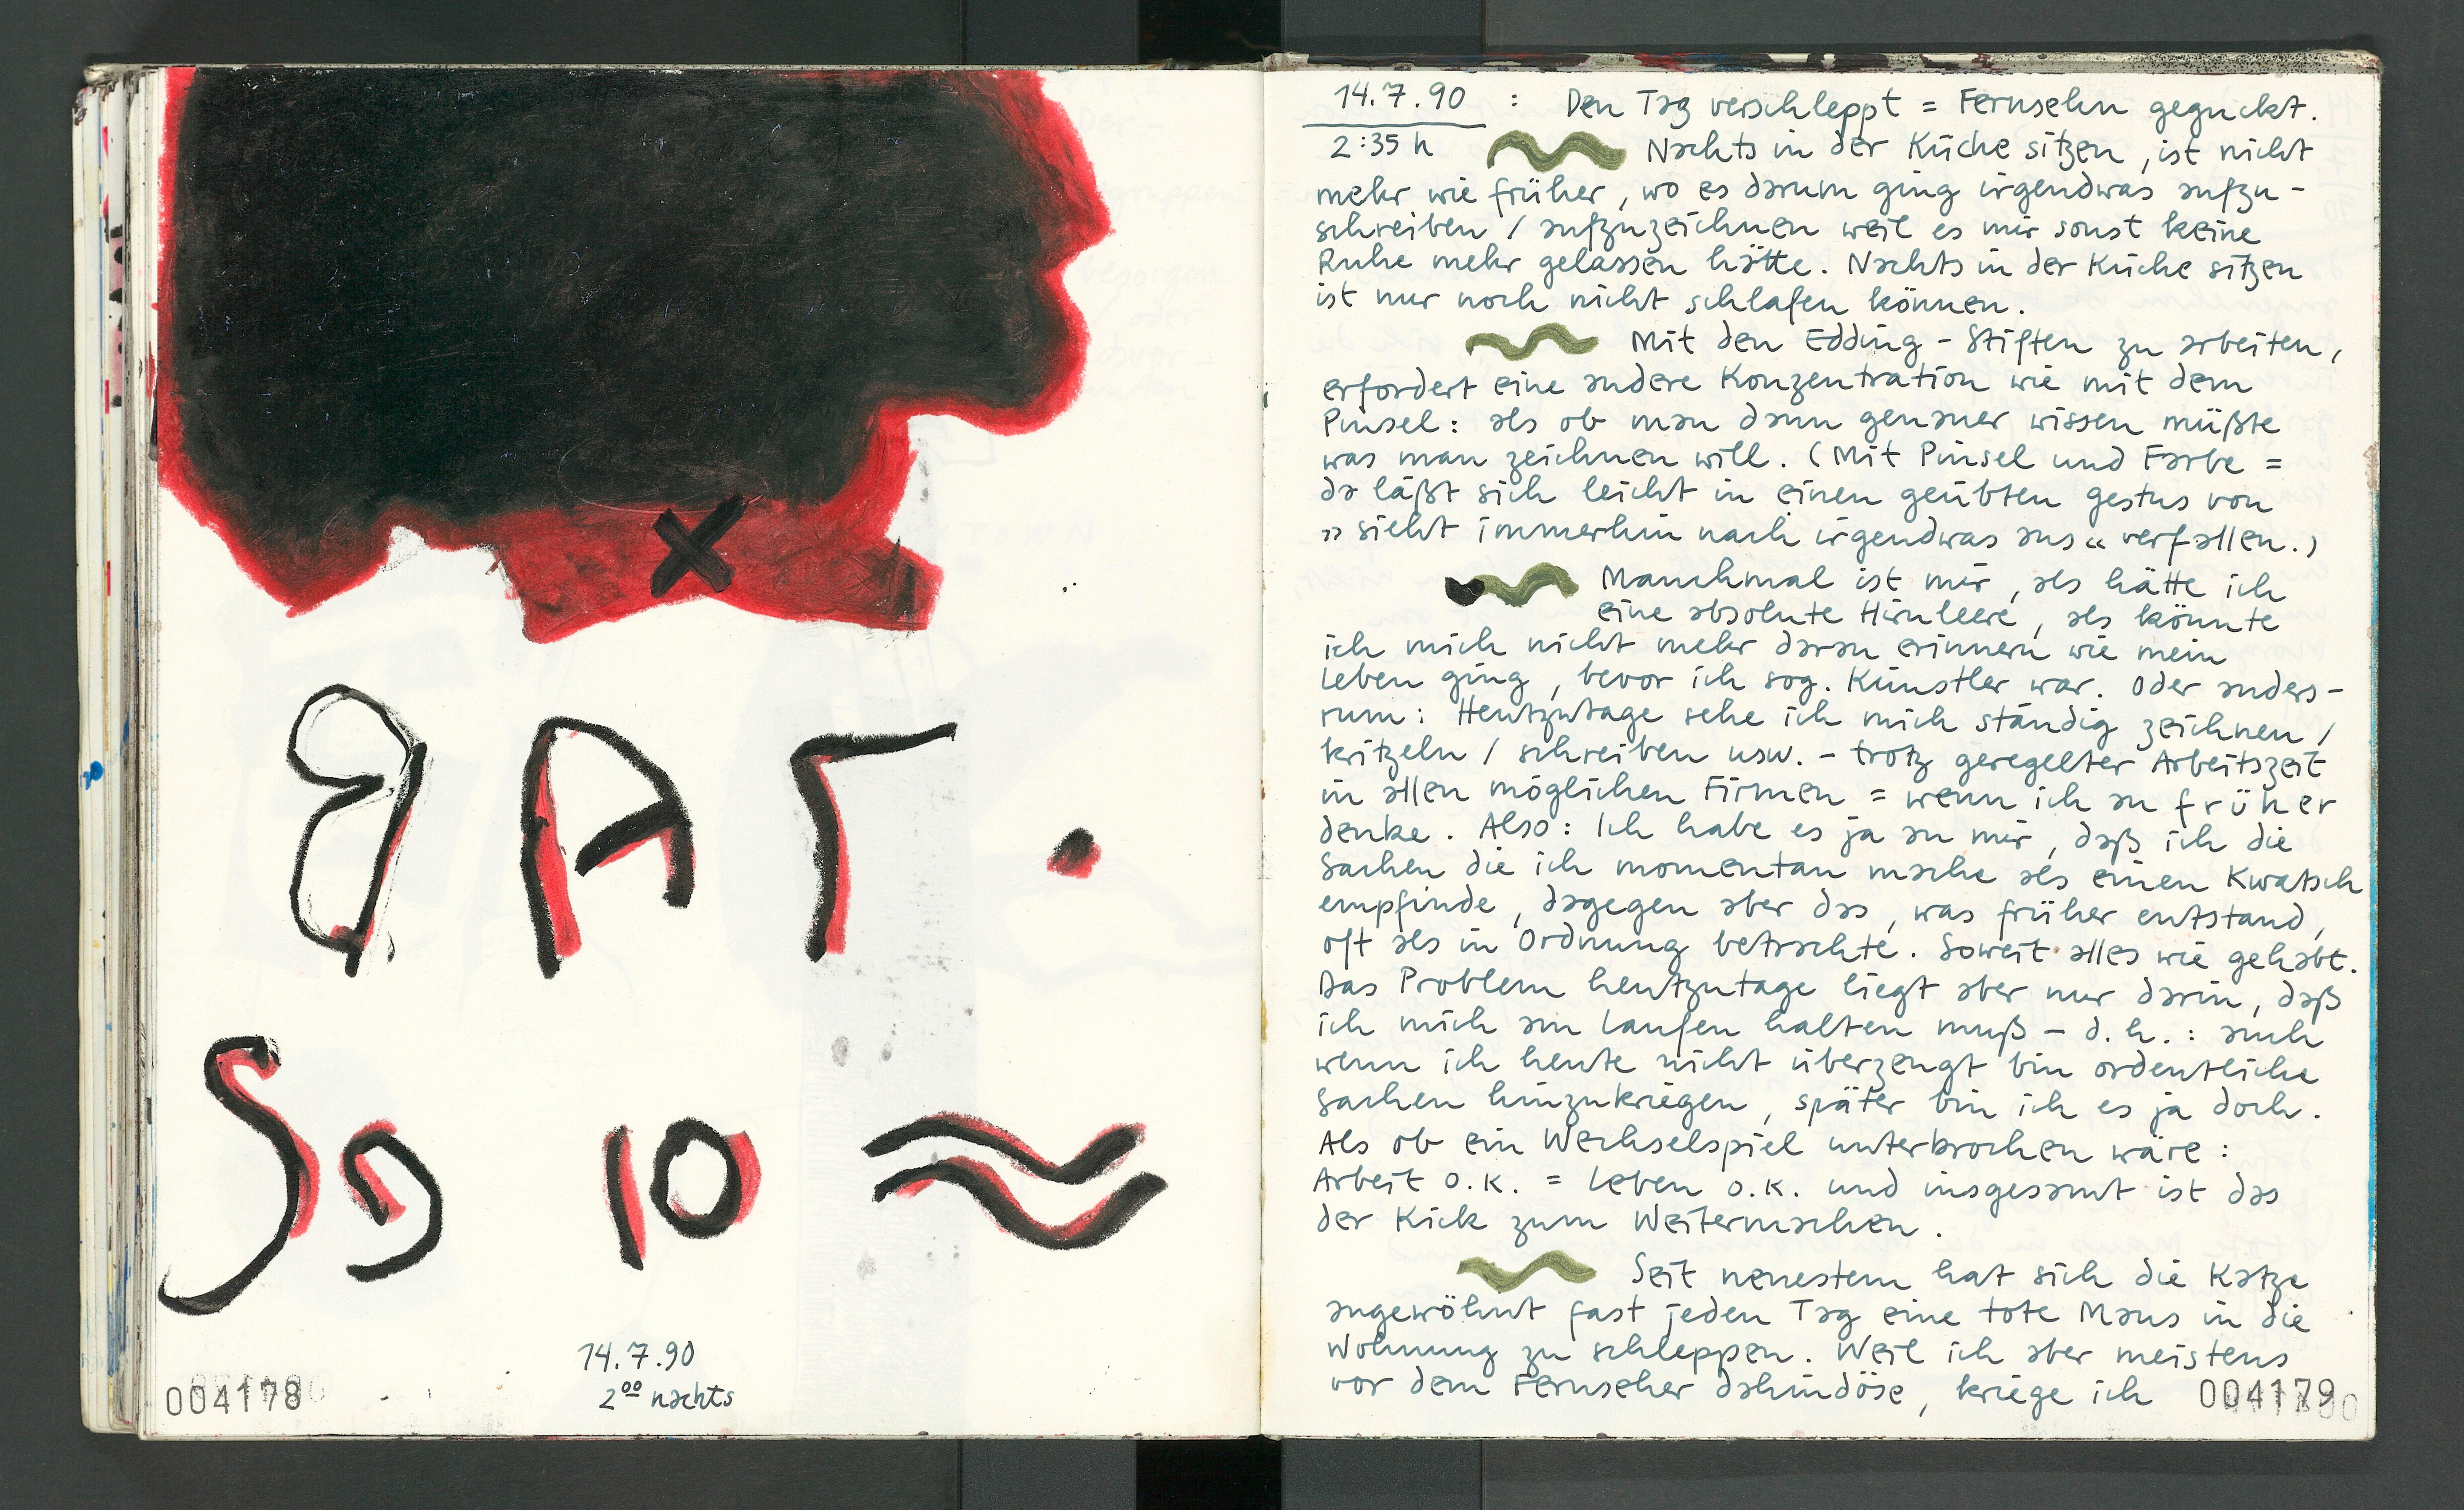 14.7.90
2⁰⁰ nachts
004178
14.7.90 : Den Tag verschleppt = Fernsehn geguckt.
2:35 h Nachts in der Küche sitzen, ist nicht
mehr wie früher, wo es darum ging irgendwas aufzu-
schreiben / aufzuzeichnen weil es mir sonst keine
Ruhe mehr gelassen hätte. Nachts in der Küche sitzen
ist nur noch nicht schlafen können.
Mit den Edding-Stiften zu arbeiten,
erfordert eine andere Konzentration wie mit dem
Pinsel: als ob man dann genauer wissen müßte
was man zeichnen will. (Mit Pinsel und Farbe =
da läßt sich leicht in einen geübten gestus von
»sieht immerhin nach irgendwas aus« verfallen.)
Manchmal ist mir, als hätte ich
eine absolute Hirnleere, als könnte
ich mich nicht mehr daran erinnern wie mein
Leben ging, bevor ich sog. Künstler war. Oder anders-
rum: Heutzutage sehe ich mich ständig zeichnen /
kritzeln / schreiben usw. - trotz geregelter Arbeitszeit
in allen möglichen Firmen = wenn ich an früher
denke. Also: Ich habe es ja an mir, daß ich die
Sachen die ich momentan mache als einen Kwatsch
empfinde, dagegen aber das, was früher entstand,
oft als in Ordnung betrachte. Soweit alles wie gehabt.
Das Problem heutzutage liegt aber nur darin, daß
ich mich am Laufen halten muß - d.h.: auch
wenn ich heute nicht überzeugt bin ordentliche
Sachen hinzukriegen, später bin ich es ja doch.
Als ob ein Wechselspiel unterbrochen wäre:
Arbeit O.K. = Leben O.K. und insgesamt ist das
der Kick zum Weitermachen.
Seit neuestem hat sich die Katze
angewöhnt fast jeden Tag eine tote Maus in die
Wohnung zu schleppen. Weil ich aber meistens
vor dem Fernseher dahindöse, kriege ich
004179